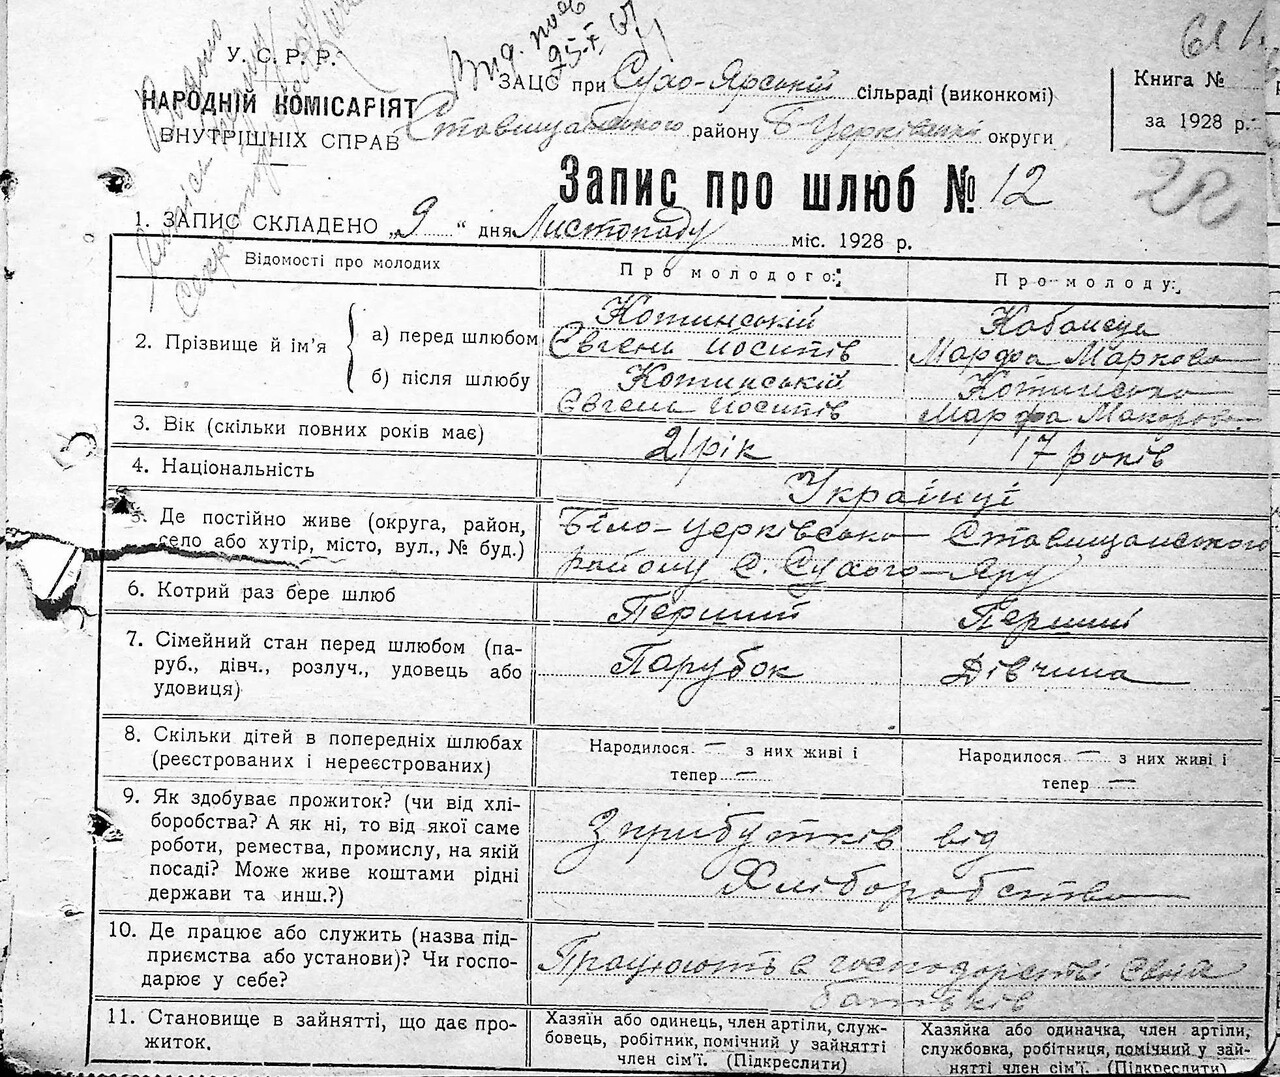 У.С.Р.Р.
НАРОДНІЙ КОМІСАРІЯТ
ВНУТРІШНІХ СПРАВ
ЗАЦС при Сухо-Ярській сільраді (виконкомі)
Ставищанського району Б Церківської округи
Книга №
за 1928 р.
Запис про шлюб № 12
28
1. ЗАПИС СКЛАДЕНО „9 “ дня Листопаду міс. 1928 р.
Відомості про молодих
Про молодого:
Про молоду:
2. Прізвище й ім'я
а) перед шлюбом
Євгень Йосипів
Марфа Маркова
б) після шлюбу
Євгень Йосипів
Марфа
3. Вік (скільки повних років має)
21 рік
17 років
4. Національність
Українці
5. Де постійно живе (округа, район,
село або хутір, місто, вул., № буд.)
Біло-церківсько Ставищанського
району С. Сухого-Яру
6. Котрий раз бере шлюб
Перший
Перший
7. Сімейний стан перед шлюбом (па-
руб., дівч., розлуч., удовець або
удовиця)
Парубок
Дівчина
8. Скільки дітей в попередніх шлюбах
(реєстрованих і нереєстрованих)
Народилося — з них живі і
тепер —
Народилося — з них живі і
тепер —
9. Як здобуває прожиток? (чи від хлі-
боробства? А як ні, то від якої саме
роботи, ремества, промислу, на якій
посаді? Може живе коштами рідні
держави та инш.?)
З прибутків від
Хліборобство
10. Де працює або служить (назва під-
приємства або установи)? Чи госпо-
дарює у себе?
Працюють в господарстві своїх
батьків
11. Становище в зайнятті, що дає про-
житок.
Хазяїн або одинець, член артілі, служ-
бовець, робітник, помічний у зайнятті
член сім'ї. (Підкреслити)
Хазяйка або одиначка, член артілі,
службовка, робітниця, помічний у зай-
нятті член сім'ї. (Підкреслити)